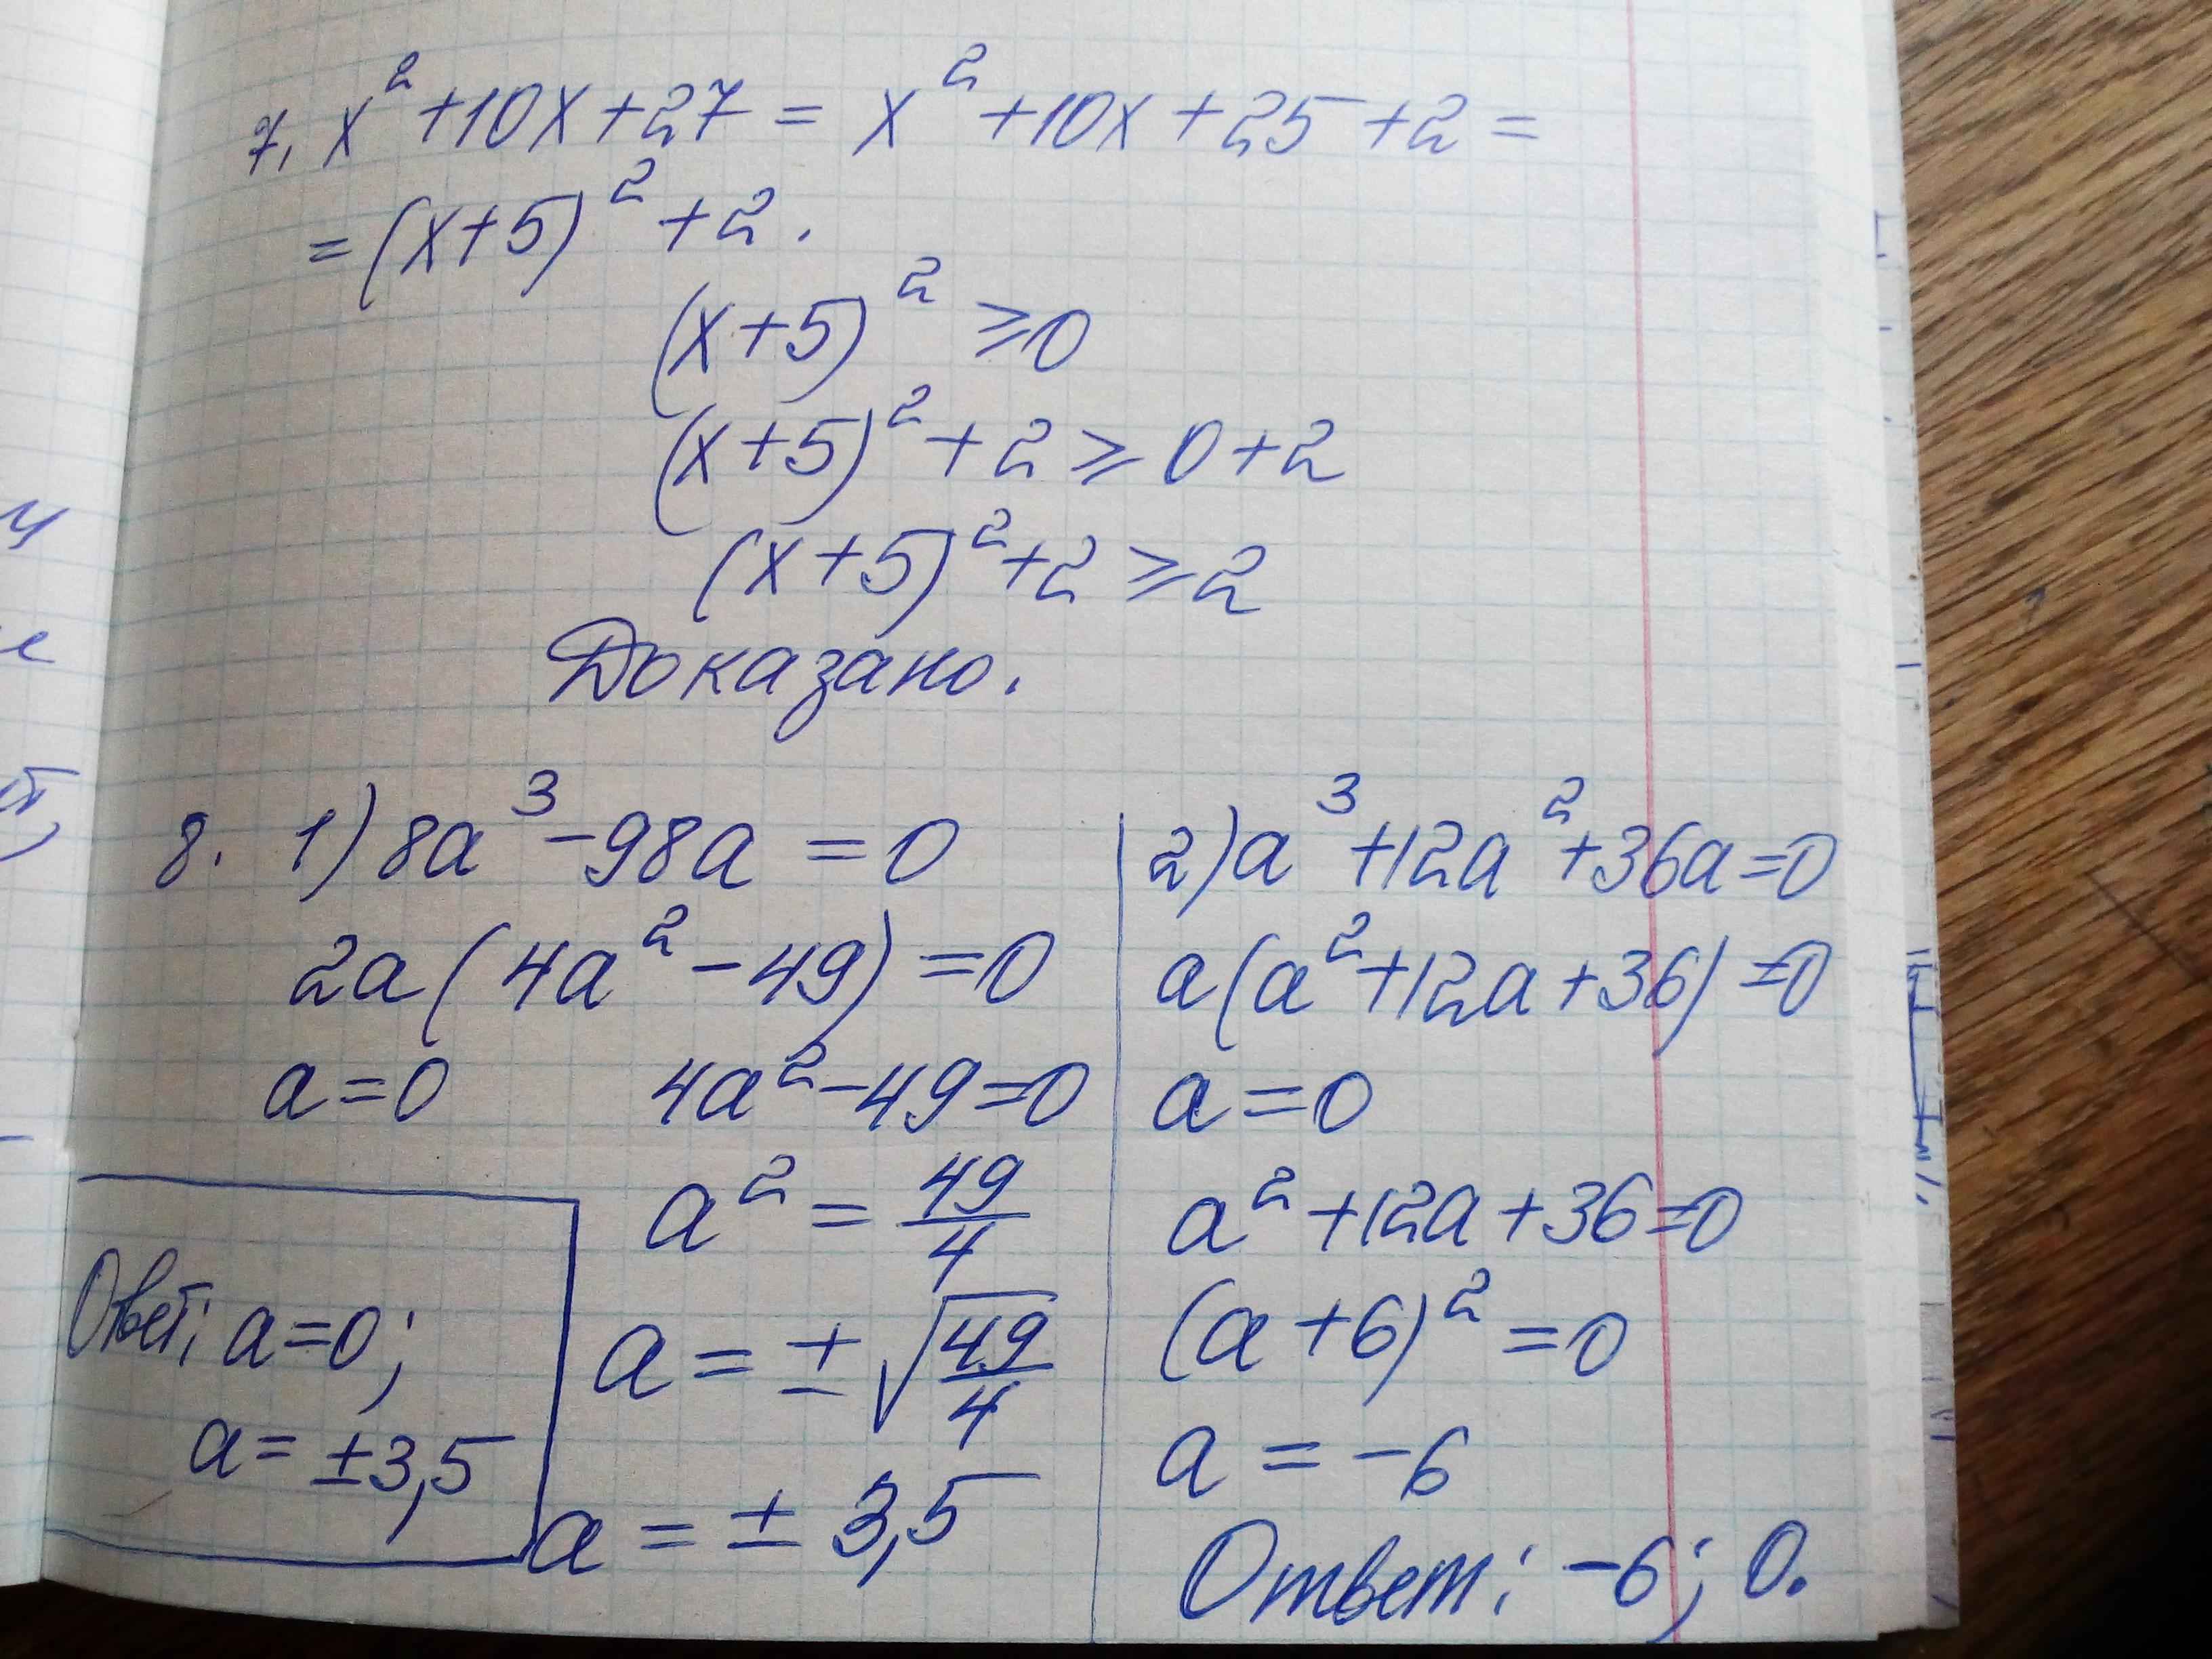 7, x² +10x+27 = x² +10x+25+2=
=(x+5)² +2.
(x+5)² ⩾0
(x+5)² +2⩾0+2
(x+5)²+2⩾2
Доказано.
8. 1) 8a³-98a=0
2a(4a²-49)=0
a=0 4a²-49=0
a² = 49/4
a = ± √49/4
a = ± 3,5
Ответ: a=0;
a= ±3,5
2) a³+12a²+36a=0
a(a²+12a+36)=0
a=0
a²+12a+36=0
(a+6)²=0
a = -6
Ответ: -6; 0.